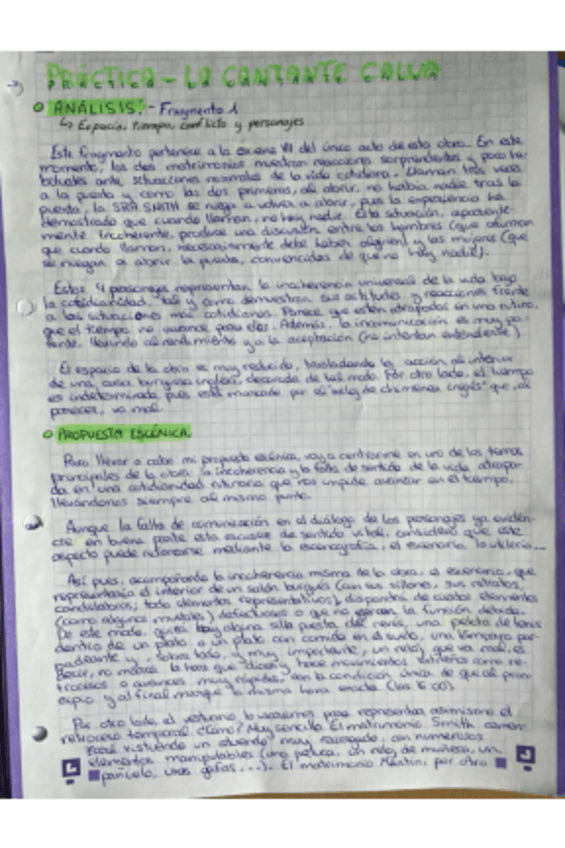 PRÁCTICA - LA CANTANTE CALVA
ANÁLISIS: - Fragmento 1
↳ Espacio, tiempo, conflicto y personajes
Este fragmento pertenece a la escena VII del único acto de esta obra. En este
momento, los dos matrimonios muestran reacciones sorprendentes y poco ha-
bituales ante situaciones normales de la vida cotidiana. Llaman tres veces
a la puerta y como las dos primeras, al abrir, no había nadie tras la
puerta, la SRA SMITH se niega a volver a abrir, pues la experiencia ha
demostrado que cuando llaman, no hay nadie. Esta situación, aparente-
mente incoherente, produce una discusión entre los hombres (que afirman
que cuando llaman, necesariamente debe haber alguien) y las mujeres (que
se niegan a abrir la puerta, convencidas de que no hay nadie).
Estos 4 personajes representan la incoherencia universal de la vida bajo
la cotidianidad, tal y como demuestran sus actitudes y reacciones frente
a las situaciones más cotidianas. Parece que están atrapados en una rutina,
que el tiempo no avance para ellos. Además, la incomunicación es muy pa-
tente, llevando al rendimiento y a la aceptación (no intentan entenderse)
El espacio de la obra es muy reducido, trasladando la acción al interior
de una casa burguesa inglesa, decorada de tal modo. Por otro lado, el tiempo
es indeterminado, pues está marcado por el "reloj de chimenea inglés" que, al
parecer, va mal.
PROPUESTA ESCÉNICA.
Para llevar a cabo mi propuesta escénica, voy a centrarme en uno de los temas
principales de la obra: la incoherencia y la falta de sentido de la vida, atrapa-
da en una cotidianidad rutinaria que nos impide avanzar en el tiempo,
llevándonos siempre al mismo punto.
Aunque la falta de comunicación en el diálogo de los personajes ya eviden-
cie en buena parte esta escasez de sentido vital, considero que este
aspecto puede reforzarse mediante la escenografía, el escenario, la utilería...
Así pues, acompañando la incoherencia misma de la obra, el escenario, que
representaría el interior de un salón burgués (con sus sillones, sus retratos,
candelabros; todo elementos representativos), dispondría de ciertos elementos
(como algunos muebles) defectuosos o que no ejerzan la función debida.
De este modo, quizá haya alguna silla puesta del revés, una pelota de tenis
dentro de un plato o un plato con comida en el suelo, una lámpara par-
padeante y, sobre todo, y muy importante, un reloj que va mal, es
decir, no marca la hora que "dicen" y hace movimientos extraños como re-
trocesos o avances muy rápidos, con la condición única de que al prin-
cipio y al final marque la misma hora exacta (las
Por otro lado, el vestuario lo usaremos para representar asimismo el
retroceso temporal. ¿Cómo? Muy sencillo. El matrimonio Smith comen-
zará vistiendo un atuendo muy recargado, con numerosos
elementos manipulables (una peluca, un reloj de muñeca, un
pañuelo, unas gafas...). El matrimonio Martin, por otro